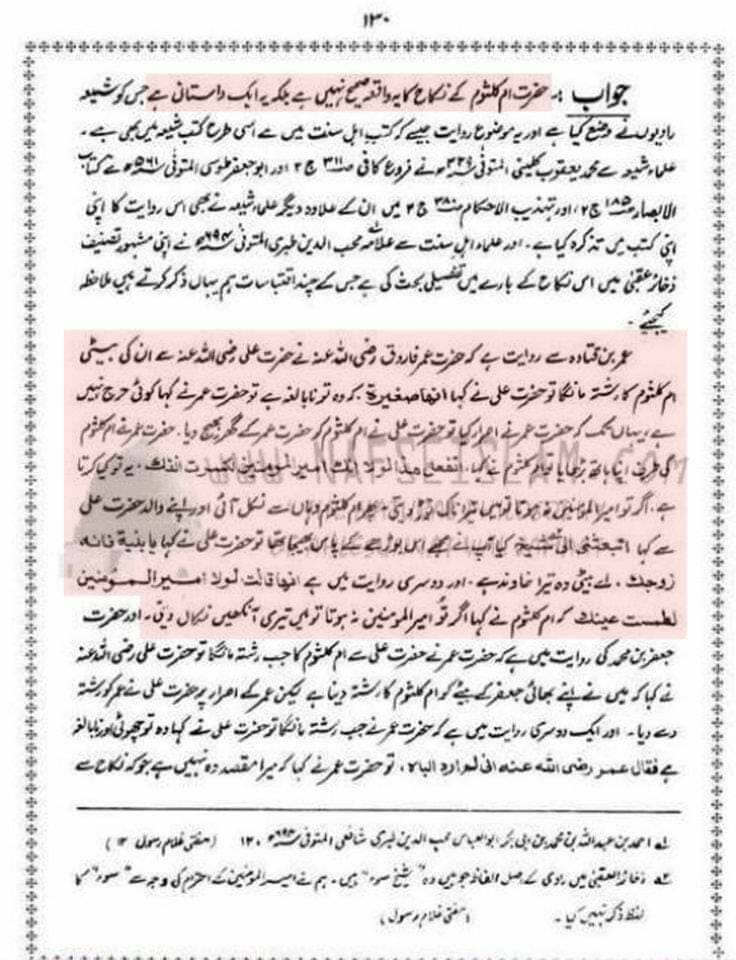 ۱۳۰
جواب :- حضرت ام کلثوم کے نکاح کا یہ واقعہ صحیح نہیں ہے بلکہ یہ ایک داستانی ہے جس کو شیعہ
راویوں نے وضع کیا ہے اور یہ موضوع روایت جیسے کہ کتب اہل سنت میں ہے اسی طرح کتب شیعہ میں بھی ہے۔
علماء شیعہ سے محمد یعقوب کلینی المتوفی ۳۲۹ھ نے فروع کافی ص۳۱۱ ج ۲ اور ابو جعفر طوسی المتوفی نے کتاب
الابصار ص۱۸۵ ج ۲، اور تہذیب الاحکام ص۳۸۰ ج ۲ میں ان کے علاوہ دیگر علماء شیعہ نے بھی اس روایت کا اپنی
اپنی کتب میں تذکرہ کیا ہے۔ اور علماء اہل سنت سے علامہ محب الدین طبری المتوفی ۶۹۴ھ نے اپنی مشہور تصنیف
ذخائر عقبیٰ میں اس نکاح کے بارے میں تفصیلی بحث کی ہے جس کے چند اقتباسات ہم یہاں ذکر کرتے ہیں ملاحظہ
کیجئے۔
عمر بن قتادہ سے روایت ہے کہ حضرت عمر فاروق رضی اللہ عنہ نے حضرت علی رضی اللہ عنہ سے ان کی بیٹی
ام کلثوم کا رشتہ مانگا تو حضرت علی نے کہا انھا صغیرۃ کہ وہ تو نابالغہ ہے تو حضرت عمر نے کہا کوئی حرج نہیں
ہے، یہاں تک کہ حضرت عمر نے اصرار کیا تو حضرت علی نے ام کلثوم کو حضرت عمر کے گھر بھیج دیا۔ حضرت عمر نے ام کلثوم
کی طرف اپنا ہاتھ بڑھایا تو ام کلثوم نے کہا، اتفعل ھذا لولا انک امیر المومنین لکسرت انفک، یہ تو کیا کرتا
ہے، اگر تو امیر المؤمنین نہ ہوتا تو میں تیرا ناک توڑ دیتی، پھر ام کلثوم وہاں سے نکل آئی اور اپنے والد حضرت علی
سے کہا اتبعثنی الی شیخ کیا آپ نے مجھے اس بوڑھے کے پاس بھیجا تھا تو حضرت علی نے کہا یا بنیۃ فانہ
زوجک، اے بیٹی وہ تیرا خاوند ہے۔ اور دوسری روایت میں ہے انھا قالت لولا امیر المؤمنین
لطمست عینک کہ ام کلثوم نے کہا اگر تو امیر المومنین نہ ہوتا تو میں تیری آنکھیں نکال دیتی۔ اور حضرت
جعفر بن محمد کی روایت میں ہے کہ حضرت عمر نے حضرت علی سے ام کلثوم کا جب رشتہ مانگا تو حضرت علی رضی اللہ عنہ
نے کہا کہ میں نے اپنے بھائی جعفر کے بیٹے کو ام کلثوم کا رشتہ دینا ہے لیکن عمر کے اصرار پر حضرت علی نے عمر کو رشتہ
دے دیا۔ اور ایک دوسری روایت میں ہے کہ حضرت عمر نے جب رشتہ مانگا تو حضرت علی نے کہا وہ تو چھوٹی اور نابالغہ
ہے فقال عمر رضی اللہ عنہ انی لم ارد الباہ، تو حضرت عمر نے کہا کہ میرا مقصد وہ نہیں ہے جو کہ نکاح سے
۱ احمد بن عبداللہ بن محمد بن ابی بکر ابو العباس محب الدین طبری شافعی المتوفی ۶۹۴ھ ۱۲۰ (مفتی غلام رسول ۱۲)
۲ ذخائر العقبیٰ میں راوی کے اصل الفاظ جو ہیں وہ "شیخ سوء" ہیں۔ ہم نے امیر المومنین کے احترام کی وجہ سے "سوء" کا
لفظ ذکر نہیں کیا۔ (مفتی غلام رسول)
www.NAFSEISLAM.com